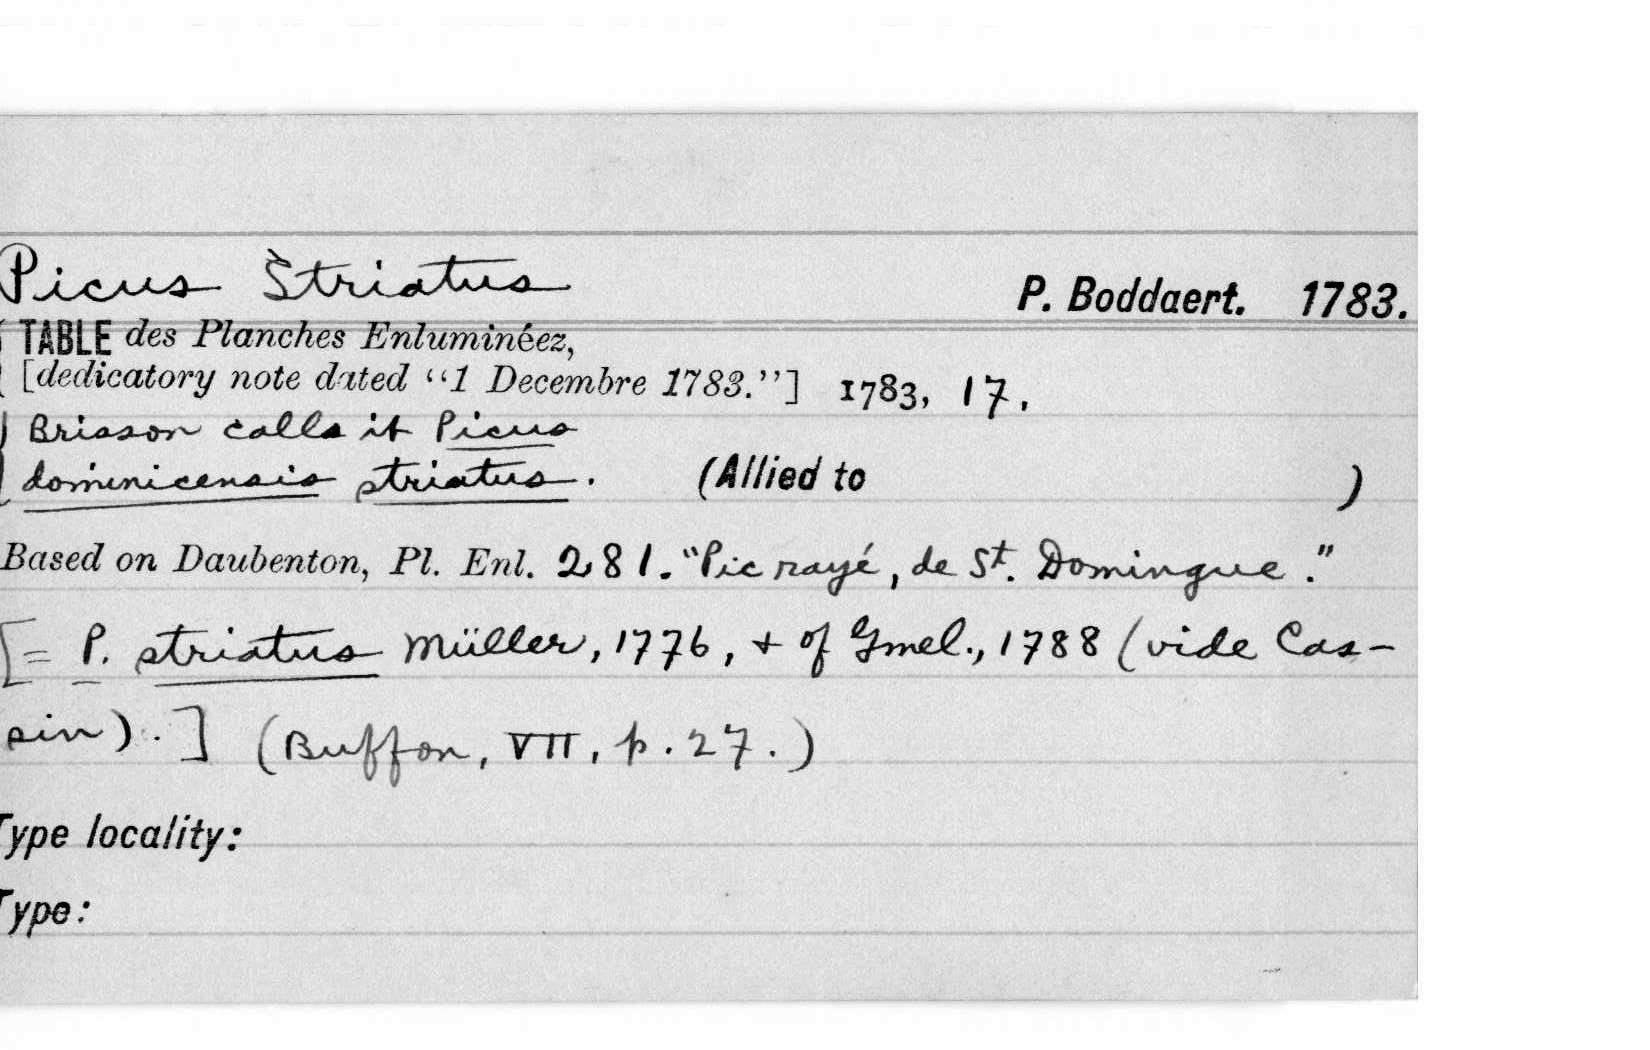 Picus Striatus P. Boddaert. 1783.
TABLE des Planches Enluminéez,
[dedicatory note dated “1 Decembre 1783.”] 1783, 17.
Brisson calls it Picus
dominicensis striatus. (Allied to )
Based on Daubenton, Pl. Enl. 281. "Pic rayé, de St. Domingue."
[= P. striatus Müller, 1776, + of Gmel., 1788 (vide Cas-
sin). ] (Buffon, VII, p. 27.)
Type locality:
Type: